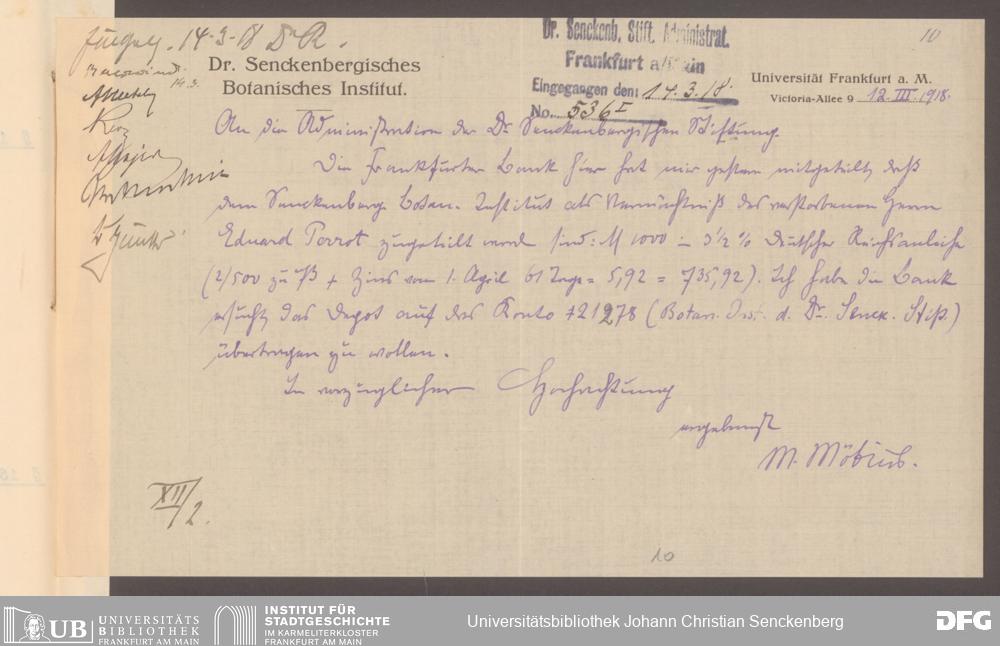 14-3-18 Dr R.
14.3.
Dr. Senckenbergisches
Botanisches Institut.
Dr. Senckenb. Stift. Administrat.
Frankfurt a/Main
Eingegangen den: 14.3.18.
No. 536 I
10
Universität Frankfurt a. M.
Victoria-Allee 9 12. III. 1918.
An die Administration der Dr. Senckenbergischen Stiftung.
Die Frankfurter Bank hier hat mir gestern mitgeteilt, daß
dem Senckenberg. Botan. Institut als Vermächtniß des verstorbenen Herrn
Eduard Perrot zugeteilt worden sind: M 1000 – 3½ % Deutsche Reichsanleihe
(2/500 zu + Zins vom 1. April 61 Tage = 5,92 = 735,92). Ich habe die Bank
ersucht, das Depot auf das Konto 721278 (Botan. Inst. d. Dr. Senck. Stift.)
übertragen zu wollen.
In vorzüglicher Hochachtung
ergebenst
M. Möbius.
XII/2.
10
UB UNIVERSITÄTS
BIBLIOTHEK
FRANKFURT AM MAIN
INSTITUT FÜR
STADTGESCHICHTE
IM KARMELITERKLOSTER
FRANKFURT AM MAIN
Universitätsbibliothek Johann Christian Senckenberg
DFG